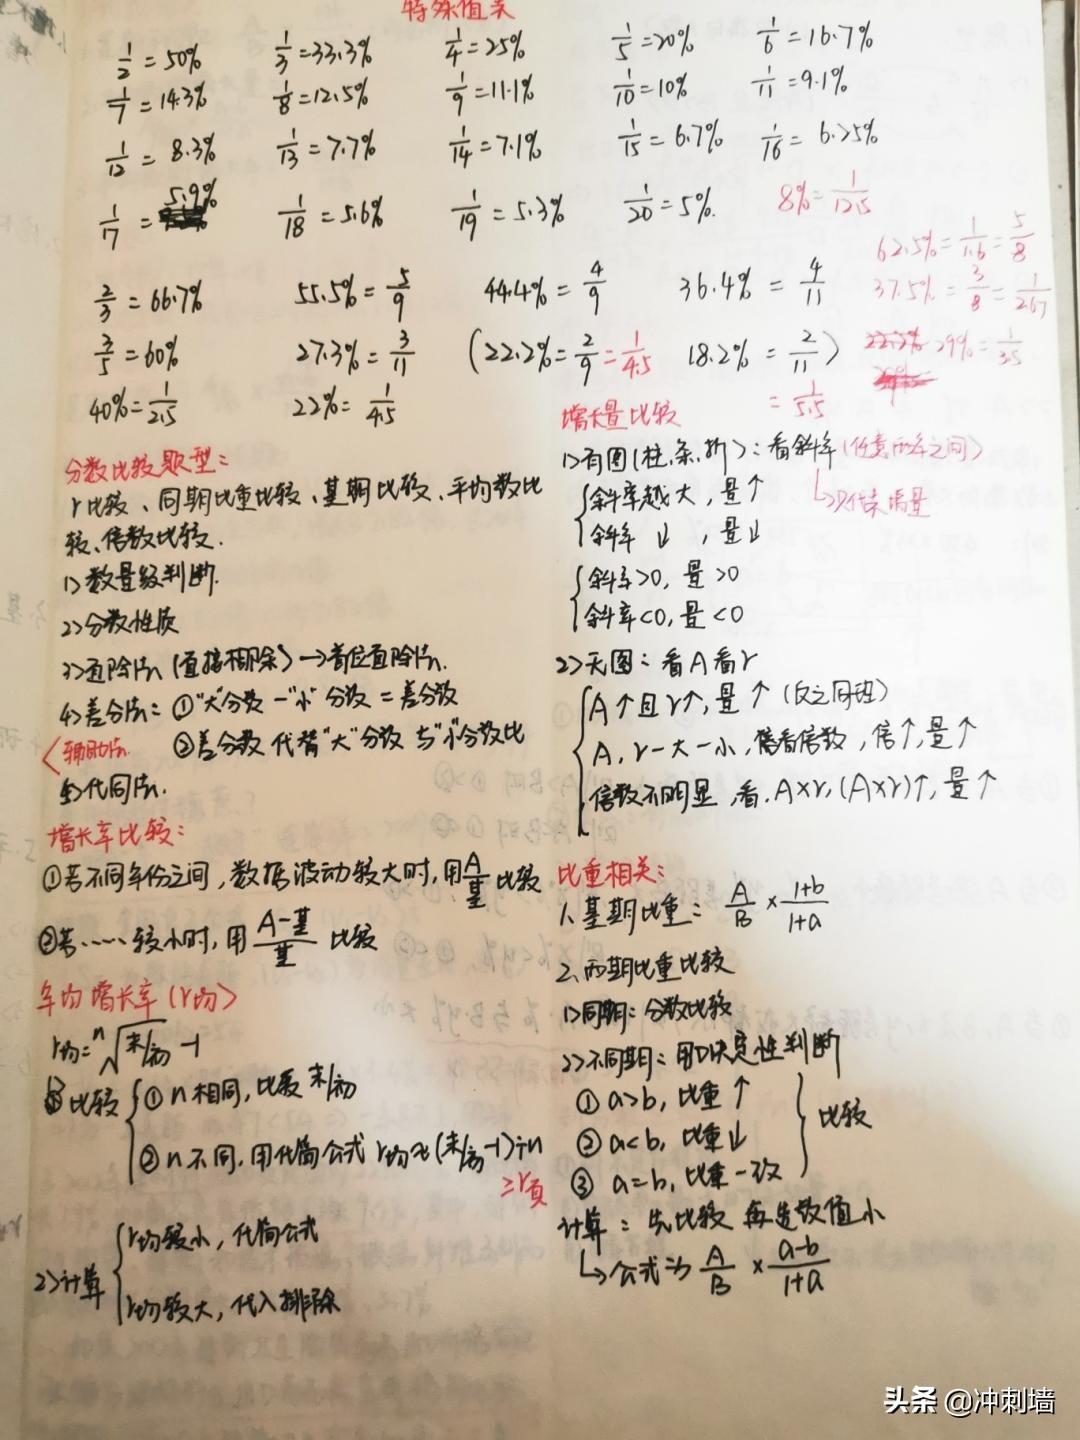 特殊值类
1/2 = 50%  1/3 = 33.3%  1/4 = 25%  1/5 = 20%  1/6 = 16.7%
1/7 = 14.3%  1/8 = 12.5%  1/9 = 11.1%  1/10 = 10%  1/11 = 9.1%
1/12 = 8.3%  1/13 = 7.7%  1/14 = 7.1%  1/15 = 6.7%  1/16 = 6.25%
1/17 = 5.9%  1/18 = 5.6%  1/19 = 5.3%  1/20 = 5%.  8% = 1/12.5
62.5% = 1/1.6 = 5/8
2/3 = 66.7%  55.5% = 5/9  44.4% = 4/9  36.4% = 4/11  37.5% = 3/8 = 1/2.67
3/5 = 60%  27.3% = 3/11  (22.2% = 2/9 = 1/4.5  18.2% = 2/11) = 1/5.5  29% = 1/3.5
40% = 1/2.5  22% = 1/4.5
分数比较题型:
r比较、同期比重比较、基期比较、平均数比
较、倍数比较.
1>数量级判断.
2>分数性质
3>直除法 (直接相除)→首位直除法.
4>差分法: ①"大"分数 - "小"分数 = 差分数
②差分数代替"大"分数 与"小"分数比
<辅助法
5>化同法.
增长率比较:
①若不同年份之间, 数据波动较大时, 用A/基 比较
②若······较小时, 用 (A-基)/基 比较
年均增长率(r均)
r均= n√末/初 -1
1>比较
①n相同, 比较 末/初
②n不同, 用化简公式 r均≈(末/初-1)÷n
≥r真
2>计算
r均较小, 化简公式
r均较大, 代入排除
增长量比较
1>有图(柱、条、折): 看斜率(任意两年之间)
↳只代表增量
斜率越大, 量↑
斜率 ↓ , 量↓
斜率>0, 量>0
斜率<0, 量<0
2>无图: 看A看r
A↑且r↑, 量↑ (反之同理)
A, r一大一小, 看倍数, 倍↑, 量↑
倍数不明显, 看A×r, (A×r)↑, 量↑
比重相关:
1. 基期比重: A/B × (1+b)/(1+a)
2. 两期比重比较
1>同期: 分数比较
2>不同期: 用决定性判断
① a>b, 比重↑
② a<b, 比重↓
③ a=b, 比重一致
比较
计算: 先比较 再选数值小
↳公式为 A/B × (a-b)/(1+a)
头条 @冲刺墙